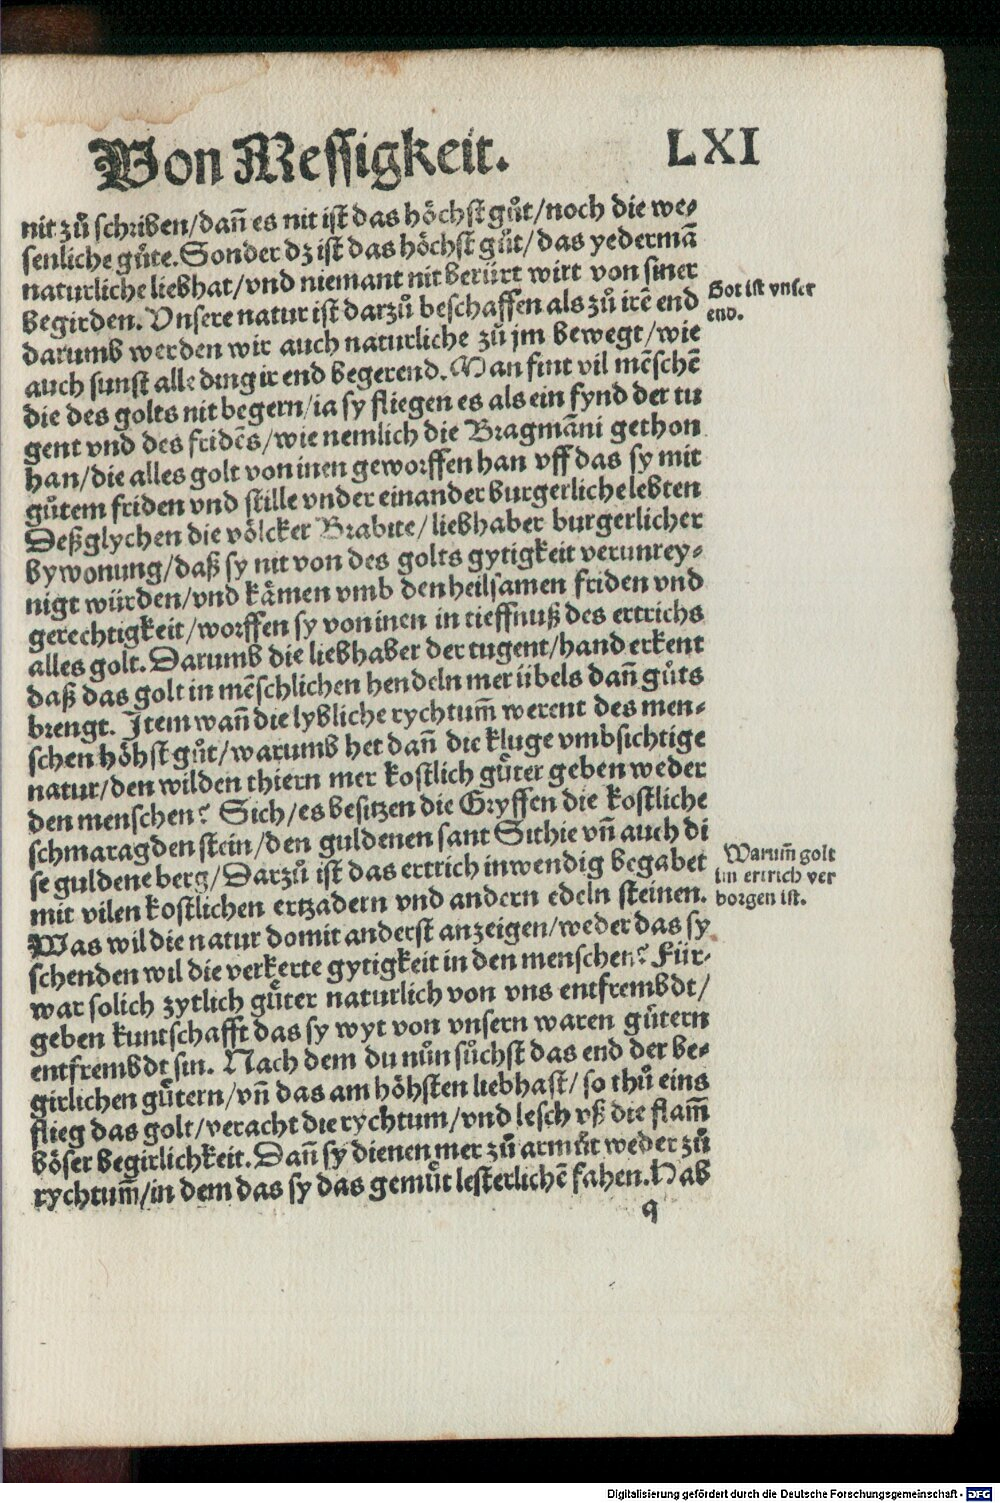 Von Messigkeit. LXI
nit zů schriben/dañ es nit ist das höchst gůt/noch die we-
senliche gůte. Sonder dz ist das höchst gůt/das yedermā
naturliche liebhat/vnd niemant nit berürt wirt von siner
begirden. Vnsere natur ist darzů beschaffen als zů irē end
darumb werden wir auch naturliche zů jm bewegt/wie
auch sunst alle ding ir end begerend. Man fint vil mēschē
die des golts nit begern/ia sy fliegen es als ein fynd der tu
gent vnd des fridēs/wie nemlich die Bragmāni gethon
han/die alles golt von inen geworffen han vff das sy mit
gůtem friden vnd stille vnder einander burgerliche lebten
Deßglychen die völcker Brabite/liebhaber burgerlicher
bywonung/daß sy nit von des golts gytigkeit verunrey-
nigt würden/vnd kämen vmb den heilsamen friden vnd
gerechtigkeit/worffen sy von inen in tieffnuß des ertrichs
alles golt. Darumb die liebhaber der tugent/hand erkent
daß das golt in mēschlichen hendeln mer übels dañ gůts
brengt. Item wañ die lybliche rychtum̄ werent des men-
schen höhst gůt/warumb het dañ die kluge vmbsichtige
natur/den wilden thiern mer kostlich gůter geben weder
den menschen? Sich/es besitzen die Gryffen die kostliche
schmaragden stein/den guldenen sant Sithie vñ auch di
se guldene berg/Darzů ist das ertrich inwendig begabet
mit vilen kostlichen ertzadern vnd andern edeln steinen.
Was wil die natur domit anderst anzeigen/weder das sy
schenden wil die verkerte gytigkeit in den menschen? Für-
war solich zytlich gůter naturlich von vns entfrembdt/
geben kuntschafft das sy wyt von vnsern waren gůtern
entfrembdt sin. Nach dem du nůn sůchst das end der be-
girlichen gůtern/vñ das am höhsten liebhast/so thů eins
flieg das golt/veracht die rychtum/vnd lesch vß die flam̄
böser begirlichkeit. Dañ sy dienen mer zů armůt weder zů
rychtum̄/in dem das sy das gemůt lesterlichē fahen. Hab
q
Got ist vnser
end.
Warum̄ golt
im ertrich ver
borgen ist.
Digitalisierung gefördert durch die Deutsche Forschungsgemeinschaft - DFG